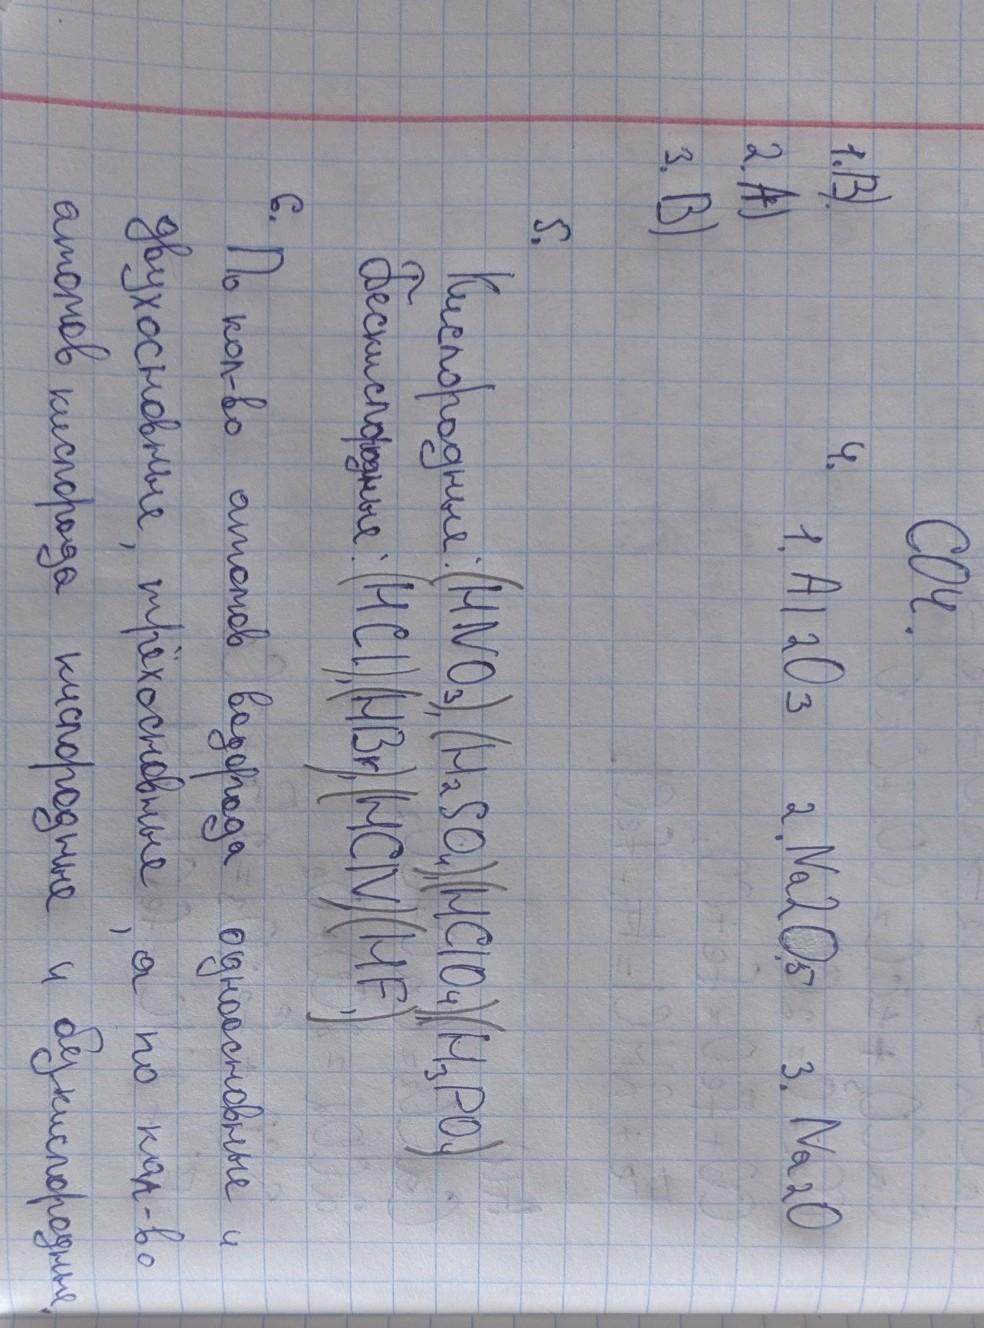 СОЧ.
1. В)
2. А)
3. В)
4.
1. Al2O3 2. Na2O5 3. Na2O
5.
Кислородные: (HNO3), (H2SO4), (HClO4), (H3PO4)
Бескислородные: (HCl), (HBr), (HCN), (HF)
6. По кол-во атомов водорода одноосновные и
двухосновные, трёхосновные, а по кол-во
атомов кислорода кислородные и безкислородные.